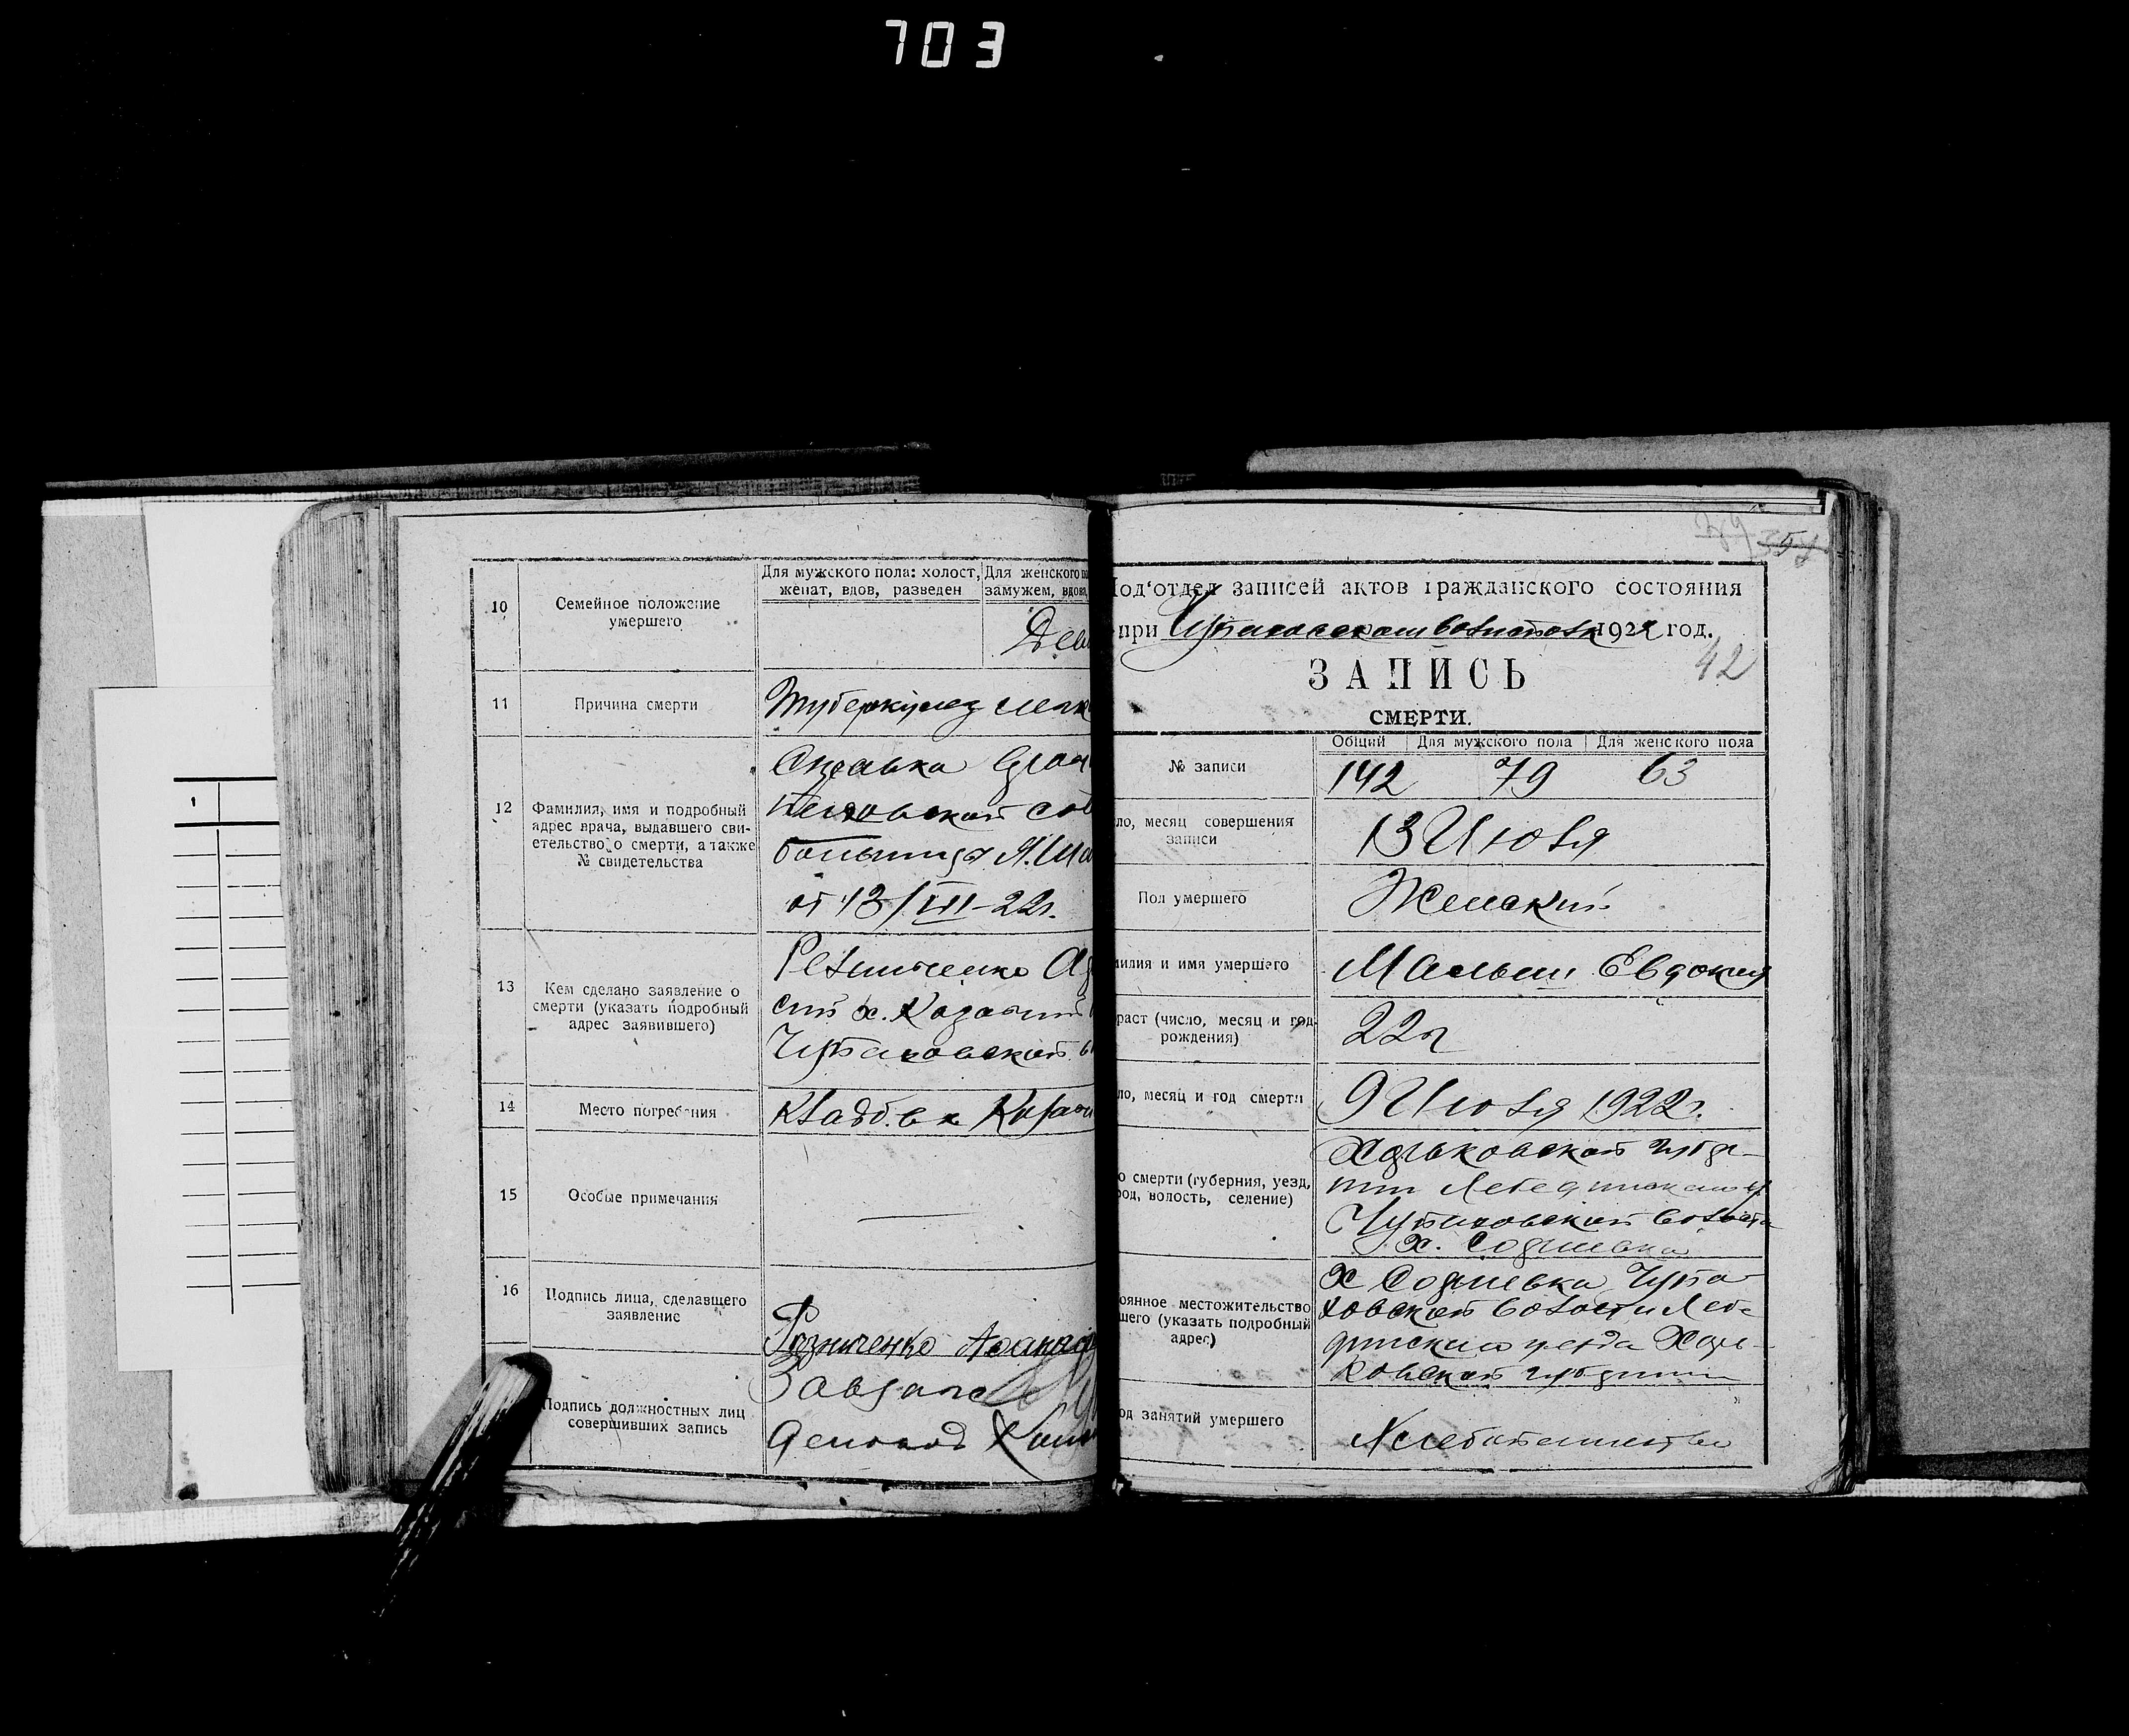 703
10
Семейное положение
умершего
Для мужского пола: холост,
женат, вдов, разведен
Для женского
замужем, вдова,
11
Причина смерти
Туберкулез легк
12
Фамилия, имя и подробный
адрес врача, выдавшего сви-
етельство о смерти, а также
№ свидетельства
Справка
больницы
от 13/III-22г.
13
Кем сделано заявление о
смерти (указать подробный
адрес заявившего)
Резниченко
х.
Чупаховской
14
Место погребения
Кладб.
15
Особые примечания
16
Подпись лица, сделавшего
заявление
Резниченко
Подпись должностных лиц
совершивших запись
Завзагс
Деловод
357
Под'отдел записей актов гражданского состояния
при Чупаховском 1922 год.
42
ЗАПИСЬ
СМЕРТИ.
Общий Для мужского пола Для женского пола
№ записи
142 79 63
ло, месяц совершения
записи
13 Июля
Пол умершего
Женский
милия и имя умершего
Малыш Евдокия
раст (число, месяц и год
рождения)
22 г
ло, месяц и год смерти
9 Июля 1922 г.
о смерти (губерния, уезд,
род, волость, селение)
Харьковской губер-
нии Лебединского у.
Чупаховской волости
х.
оянное местожительство
шего (указать подробный
адрес)
х Чупа-
ховской волости Лебе-
динского уезда Харь-
ковской губернии
од занятий умершего
Хлебопашество